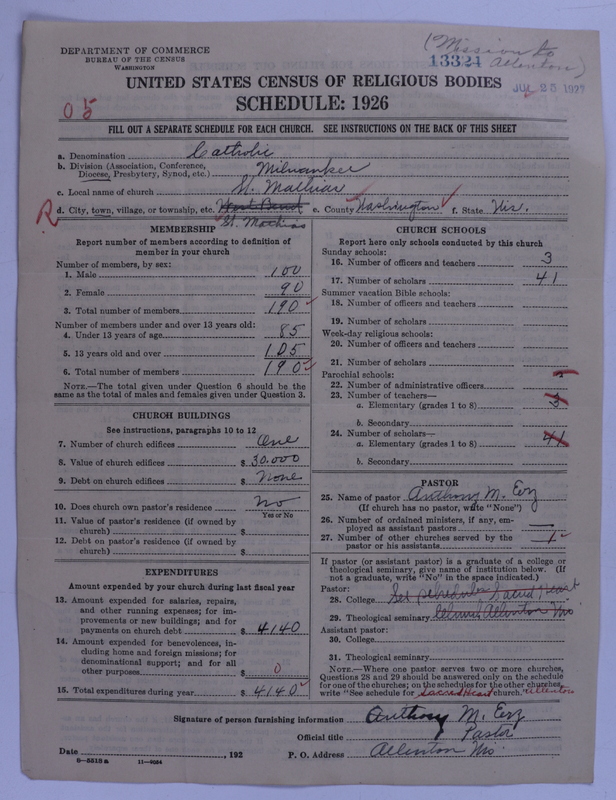 (Mission to
Allenton)
DEPARTMENT OF COMMERCE
BUREAU OF THE CENSUS
WASHINGTON
13324
JUL 25 1927
UNITED STATES CENSUS OF RELIGIOUS BODIES
SCHEDULE: 1926
05
FILL OUT A SEPARATE SCHEDULE FOR EACH CHURCH. SEE INSTRUCTIONS ON THE BACK OF THIS SHEET
a. Denomination Catholic
b. Division (Association, Conference, Diocese, Presbytery, Synod, etc.) Milwaukee
c. Local name of church St. Mathias
R d. City, town, village, or township, etc. West Bend e. County Washington f. State Wis.
St. Mathias
MEMBERSHIP
Report number of members according to definition of
member in your church
Number of members, by sex:
1. Male 100
2. Female 90
3. Total number of members 190
Number of members under and over 13 years old:
4. Under 13 years of age 85
5. 13 years old and over 105
6. Total number of members 190
NOTE.—The total given under Question 6 should be the
same as the total of males and females given under Question 3.
CHURCH BUILDINGS
See instructions, paragraphs 10 to 12
7. Number of church edifices One
8. Value of church edifices $ 30.000
9. Debt on church edifices $ None
10. Does church own pastor's residence No
Yes or No
11. Value of pastor's residence (if owned by
church) $
12. Debt on pastor's residence (if owned by
church) $
EXPENDITURES
Amount expended by your church during last fiscal year
13. Amount expended for salaries, repairs,
and other running expenses; for im-
provements or new buildings; and for
payments on church debt $ 4140
14. Amount expended for benevolences, in-
cluding home and foreign missions; for
denominational support; and for all
other purposes $ 0
15. Total expenditures during year $ 4140
CHURCH SCHOOLS
Report here only schools conducted by this church
Sunday schools:
16. Number of officers and teachers 3
17. Number of scholars 41
Summer vacation Bible schools:
18. Number of officers and teachers
19. Number of scholars
Week-day religious schools:
20. Number of officers and teachers
21. Number of scholars
Parochial schools:
22. Number of administrative officers
23. Number of teachers—
a. Elementary (grades 1 to 8) 3
b. Secondary
24. Number of scholars—
a. Elementary (grades 1 to 8) 41
b. Secondary
PASTOR
25. Name of pastor Anthony M.
(If church has no pastor, write "None")
26. Number of ordained ministers, if any, em-
ployed as assistant pastors
27. Number of other churches served by the
pastor or his assistants 1
If pastor (or assistant pastor) is a graduate of a college or
theological seminary, give name of institution below. (If
not a graduate, write "No" in the space indicated.)
Pastor:
28. College Sacred Heart
29. Theological seminary Allenton
Assistant pastor:
30. College
31. Theological seminary
NOTE.—Where one pastor serves two or more churches,
Questions 28 and 29 should be answered only on the schedule
for one of the churches; on the schedules for the other churches,
write "See schedule for Sacred Heart church." Allenton
Signature of person furnishing information Anthony M.
Official title Pastor
Date , 192 P. O. Address Allenton
8—5513 a 11—9084